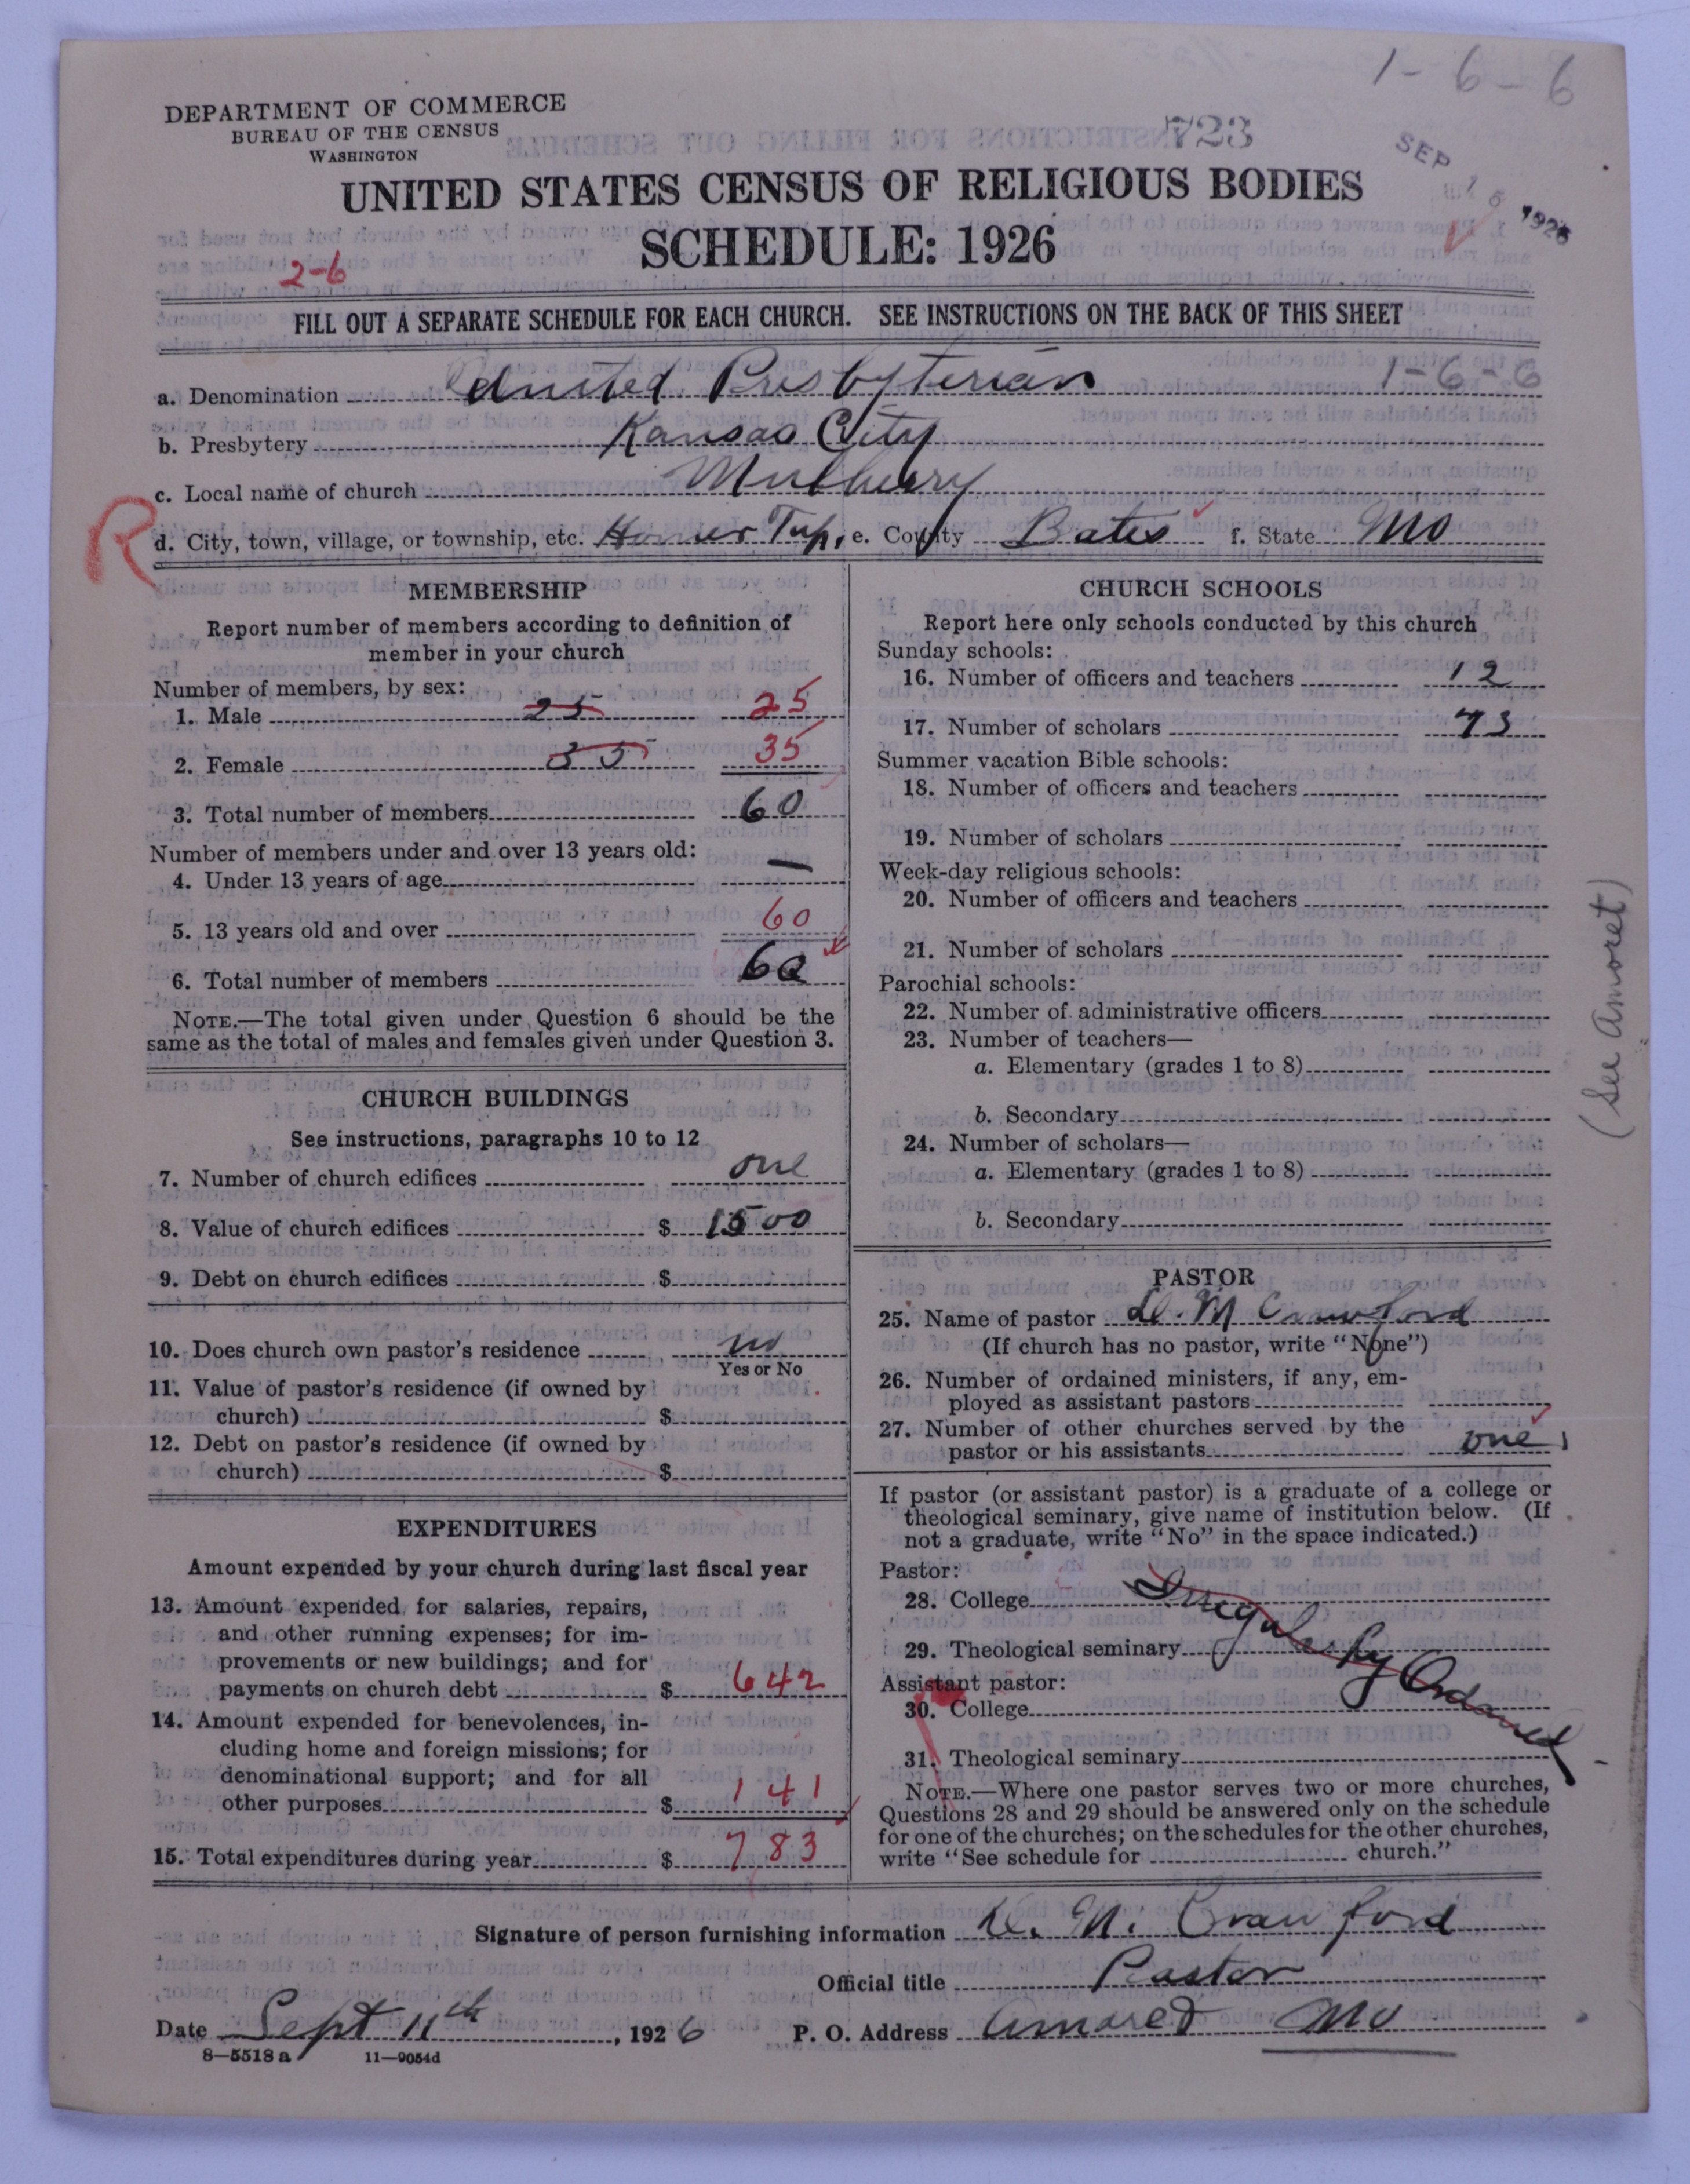 1-6-6
DEPARTMENT OF COMMERCE
BUREAU OF THE CENSUS
WASHINGTON
723
SEP 15 1926
UNITED STATES CENSUS OF RELIGIOUS BODIES
SCHEDULE: 1926
2-6
FILL OUT A SEPARATE SCHEDULE FOR EACH CHURCH. SEE INSTRUCTIONS ON THE BACK OF THIS SHEET
a. Denomination United Presbyterian 1-6-6
b. Presbytery Kansas City
c. Local name of church Mulberry
R
d. City, town, village, or township, etc. Homer Twp. e. County Bates f. State Mo
MEMBERSHIP
Report number of members according to definition of
member in your church
Number of members, by sex:
1. Male 25 25
2. Female 35 35
3. Total number of members 60
Number of members under and over 13 years old:
4. Under 13 years of age —
5. 13 years old and over 60
6. Total number of members 60
NOTE.—The total given under Question 6 should be the
same as the total of males and females given under Question 3.
CHURCH BUILDINGS
See instructions, paragraphs 10 to 12
7. Number of church edifices one
8. Value of church edifices $ 1500
9. Debt on church edifices $
10. Does church own pastor's residence no
Yes or No
11. Value of pastor's residence (if owned by
church) $
12. Debt on pastor's residence (if owned by
church) $
EXPENDITURES
Amount expended by your church during last fiscal year
13. Amount expended for salaries, repairs,
and other running expenses; for im-
provements or new buildings; and for
payments on church debt $ 642
14. Amount expended for benevolences, in-
cluding home and foreign missions; for
denominational support; and for all
other purposes $ 141
15. Total expenditures during year $ 783
CHURCH SCHOOLS
Report here only schools conducted by this church
Sunday schools:
16. Number of officers and teachers 12
17. Number of scholars 73
Summer vacation Bible schools:
18. Number of officers and teachers
19. Number of scholars
Week-day religious schools:
20. Number of officers and teachers
21. Number of scholars
Parochial schools:
22. Number of administrative officers
23. Number of teachers—
a. Elementary (grades 1 to 8)
b. Secondary
24. Number of scholars—
a. Elementary (grades 1 to 8)
b. Secondary
PASTOR
25. Name of pastor D. M Crawford
(If church has no pastor, write "None")
26. Number of ordained ministers, if any, em-
ployed as assistant pastors
27. Number of other churches served by the
pastor or his assistants one
If pastor (or assistant pastor) is a graduate of a college or
theological seminary, give name of institution below. (If
not a graduate, write "No" in the space indicated.)
Pastor:
28. College Irregularly Ordained
29. Theological seminary
Assistant pastor:
30. College
31. Theological seminary
NOTE.—Where one pastor serves two or more churches,
Questions 28 and 29 should be answered only on the schedule
for one of the churches; on the schedules for the other churches,
write "See schedule for church."
(See Amoret)
Signature of person furnishing information D. M. Crawford
Official title Pastor
Date Sept 11th, 1926 P. O. Address Amoret Mo
8—5518 a 11—9054d